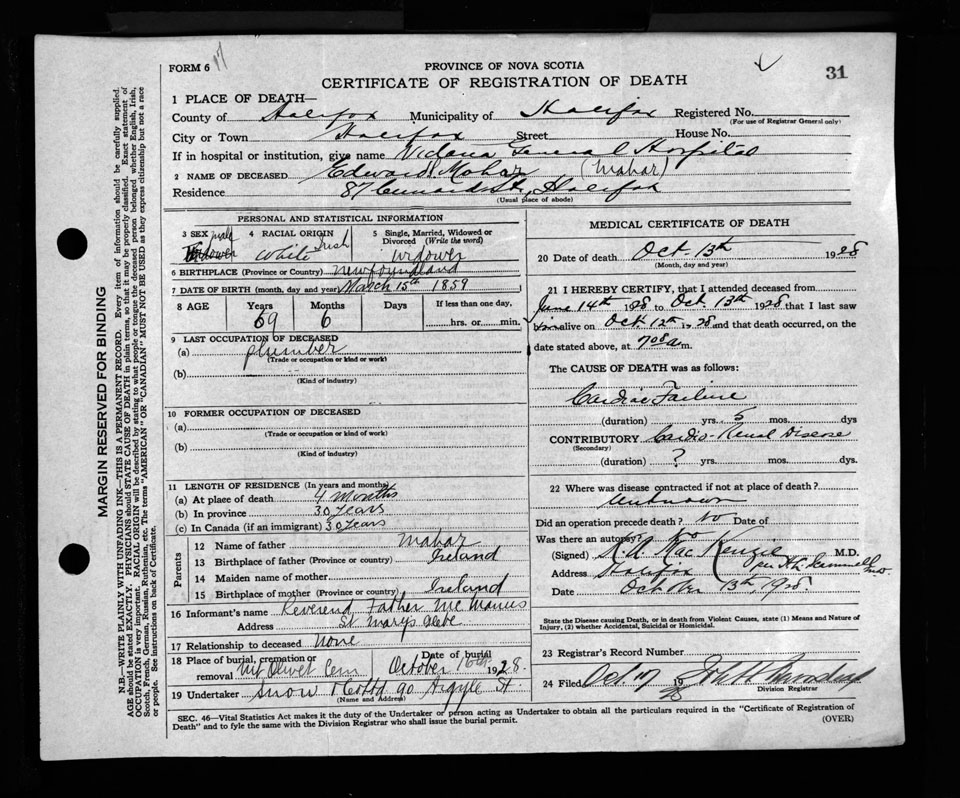 FORM 6 17
PROVINCE OF NOVA SCOTIA
31
CERTIFICATE OF REGISTRATION OF DEATH
1 PLACE OF DEATH—
County of Halifax Municipality of Halifax Registered No.
(For use of Registrar General only)
City or Town Halifax Street House No.
If in hospital or institution, give name Victoria General Hospital
2 NAME OF DECEASED Edward Mahar (Mahar)
Residence 87 Cunard St, Halifax
(Usual place of abode)
PERSONAL AND STATISTICAL INFORMATION
3 SEX male
Widower
4 RACIAL ORIGIN
White Irish
5 Single, Married, Widowed or Divorced (Write the word)
widower
6 BIRTHPLACE (Province or Country) Newfoundland
7 DATE OF BIRTH (month, day and year) March 15th 1859
8 AGE Years Months Days If less than one day,
69 6 hrs. or min.
9 LAST OCCUPATION OF DECEASED
(a) plumber
(Trade or occupation or kind or work)
(b)
(Kind of industry)
10 FORMER OCCUPATION OF DECEASED
(a)
(Trade or occupation or kind or work)
(b)
(Kind of industry)
11 LENGTH OF RESIDENCE (In years and months)
(a) At place of death 4 Months
(b) In province 30 years
(c) In Canada (if an immigrant) 30 years
Parents
12 Name of father Mahar
13 Birthplace of father (Province or country) Ireland
14 Maiden name of mother
15 Birthplace of mother (Province or country) Ireland
16 Informant's name Reverend Father McManus
Address St Marys Glebe
17 Relationship to deceased None
18 Place of burial, cremation or removal Mt Olivet Cem Date of burial October 16th 1928.
19 Undertaker Snow & Co Ltd 90 Argyle St.
(Name and Address)
MEDICAL CERTIFICATE OF DEATH
20 Date of death Oct. 13th 1928
(Month, day and year)
21 I HEREBY CERTIFY, that I attended deceased from
June 14th 1928 to Oct. 13th 1928 that I last saw
him alive on Oct. 12th 1928 and that death occurred, on the
date stated above, at 708 a m.
The CAUSE OF DEATH was as follows:
Cardiac Failure
(duration) yrs. 5 mos. dys
CONTRIBUTORY Cardio-Renal Disease
(Secondary)
(duration) ? yrs. mos. dys.
22 Where was disease contracted if not at place of death?
Unknown
Did an operation precede death? No Date of
Was there an autopsy? No
(Signed) MacKenzie M.D.
Address Halifax
Date October 13th, 1928.
State the Disease causing Death, or in death from Violent Causes, state (1) Means and Nature of Injury, (2) whether Accidental, Suicidal or Homicidal.
23 Registrar's Record Number
24 Filed Oct 17 1928
Division Registrar
SEC. 46—Vital Statistics Act makes it the duty of the Undertaker or person acting as Undertaker to obtain all the particulars required in the "Certificate of Registration of Death" and to fyle the same with the Division Registrar who shall issue the burial permit.
(OVER)
MARGIN RESERVED FOR BINDING
N.B.—WRITE PLAINLY WITH UNFADING INK—THIS IS A PERMANENT RECORD. Every item of information should be carefully supplied.
AGE should be stated EXACTLY. PHYSICIANS should STATE CAUSE OF DEATH in plain terms, so that it may be properly classified. Exact statement of
OCCUPATION is very important. RACIAL ORIGIN will be described by stating to what people or tongue the deceased person belonged whether English, Irish,
Scotch, French, German, Russian, Ruthenian, etc. The terms "AMERICAN" OR "CANADIAN" MUST NOT BE USED as they express citizenship but not a race
or people. See Instructions on back of Certificate.